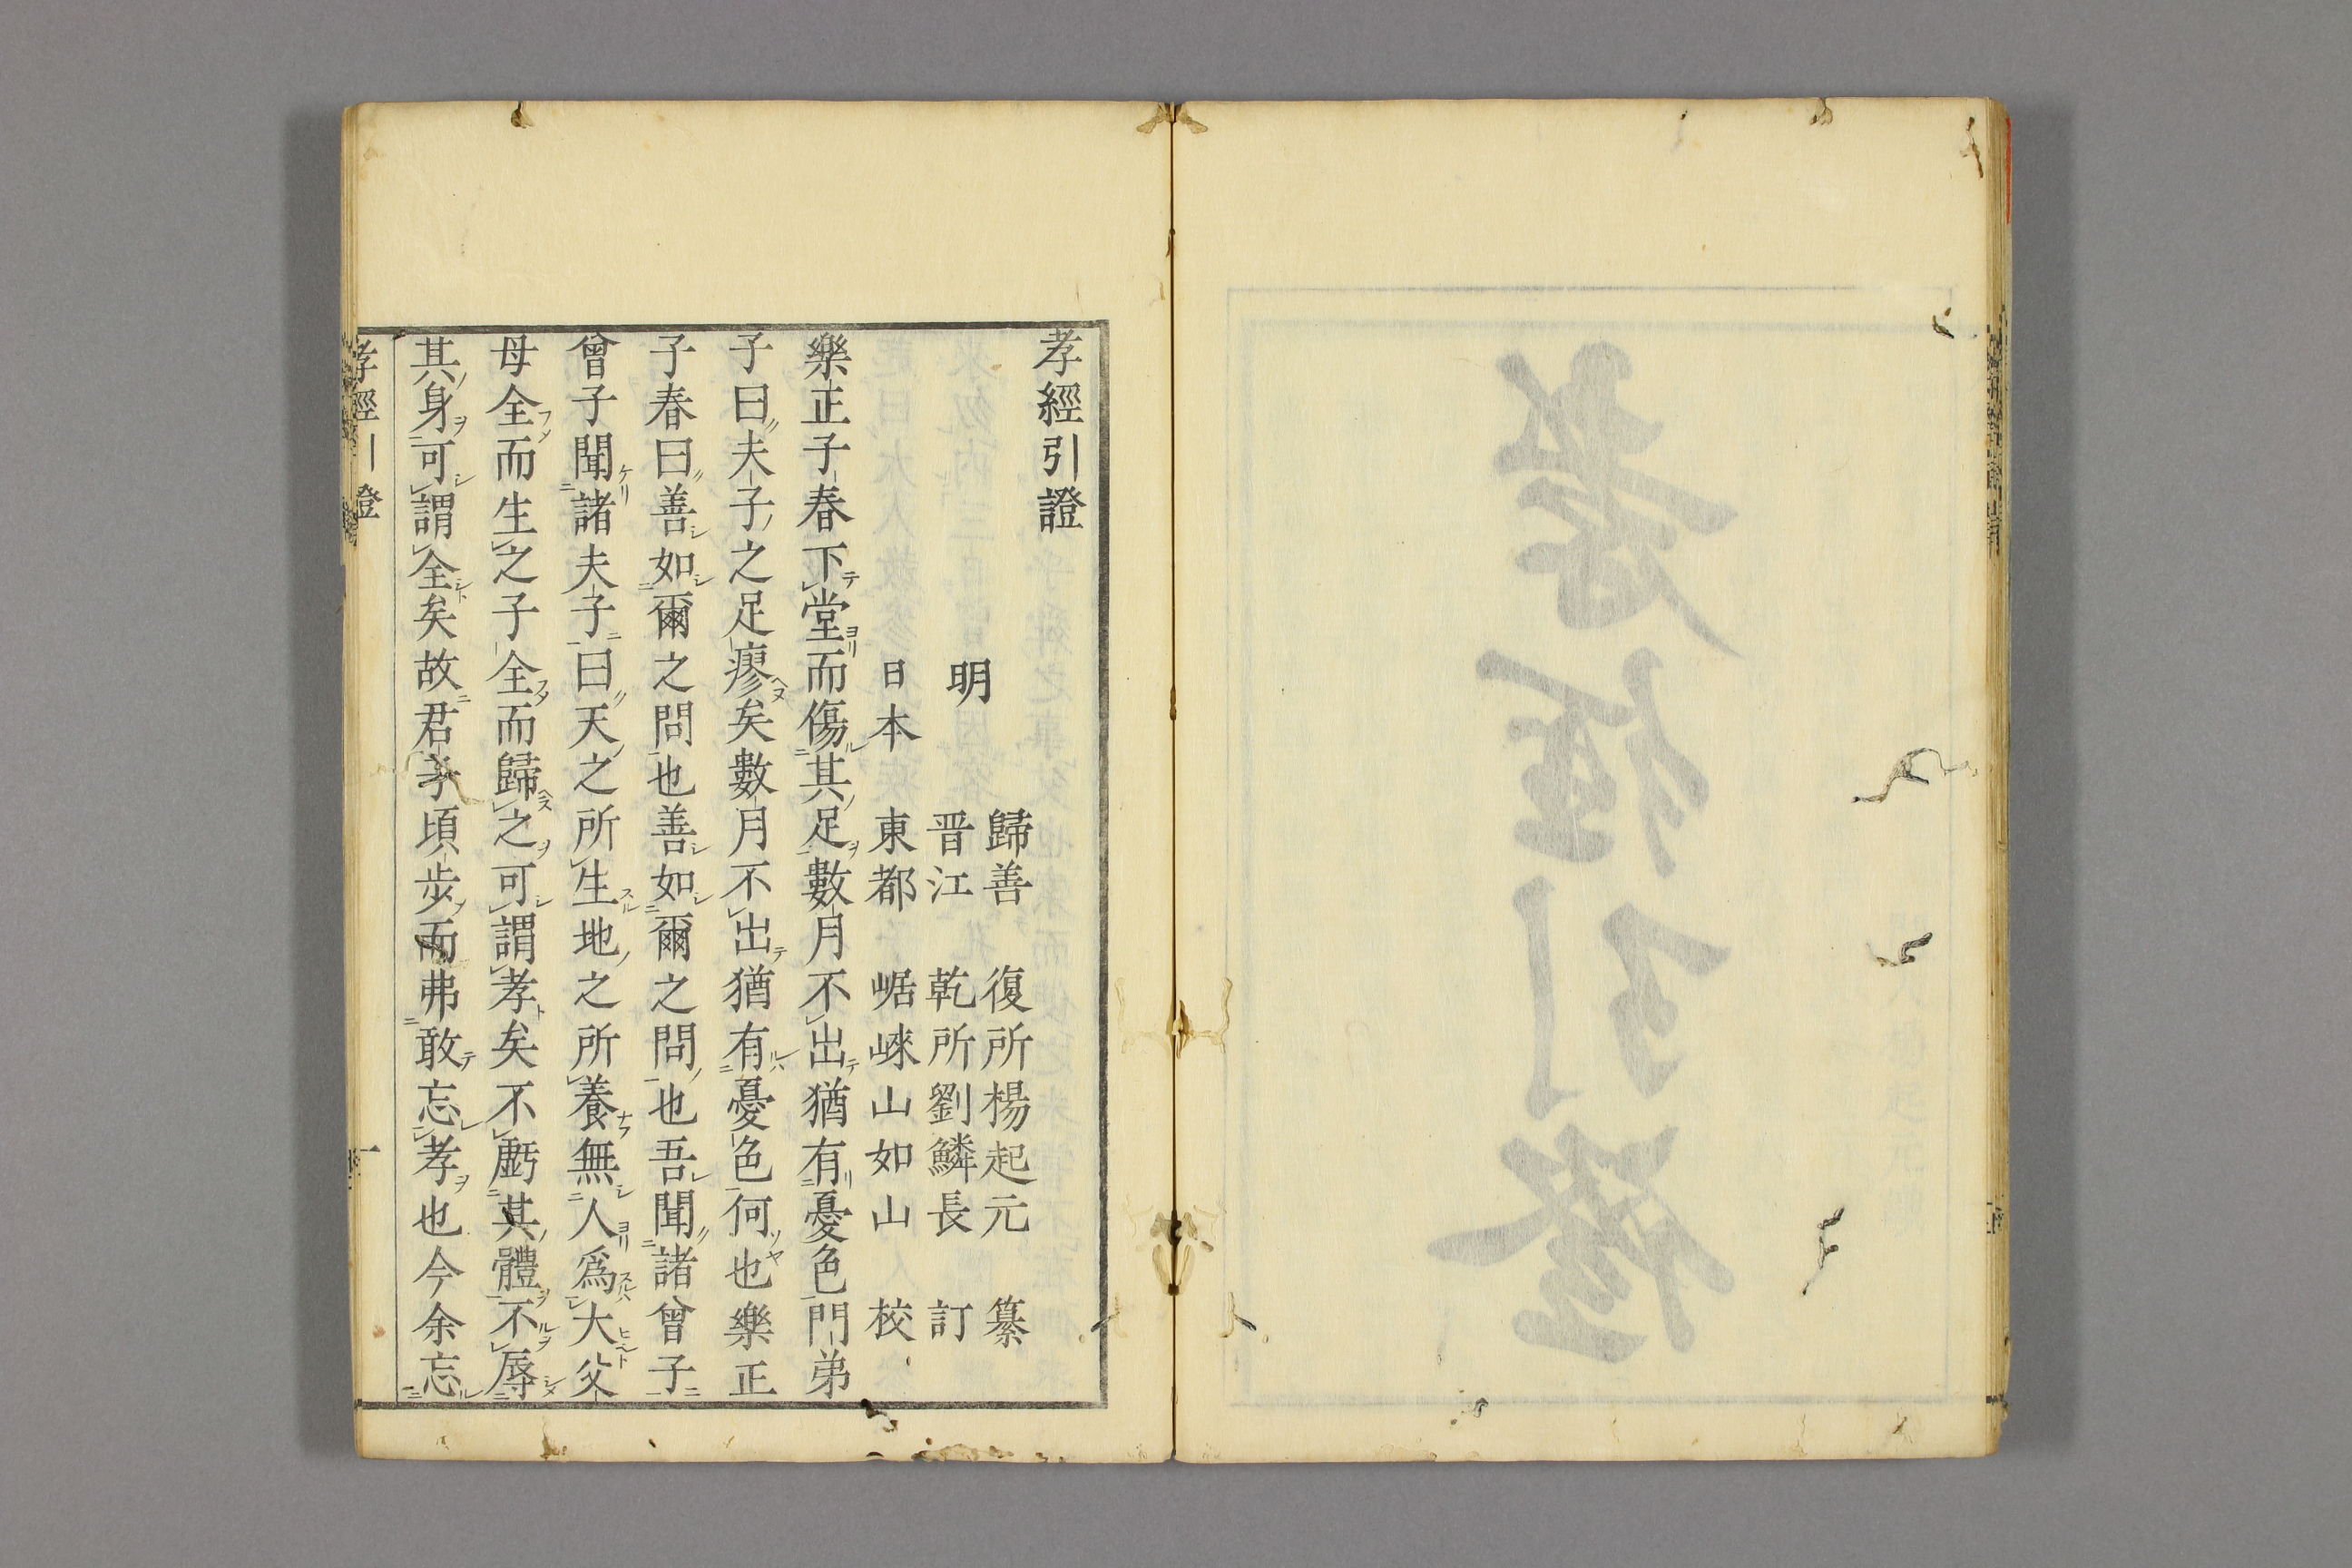 孝經引證
歸善 復所楊起元 纂
明 晋江 乾所劉鱗長 訂
日本 東都 崌崍山如山 校
樂正子春下堂而傷其足數月不出猶有憂色門弟
子曰夫子之足瘳矣數月不出猶有憂色何也樂正
子春曰善如爾之問也善如爾之問也吾聞諸曾子
曾子聞諸夫子曰天之所生地之所養無人爲大父
母全而生之子全而歸之可謂孝矣不虧其體不辱
其身可謂全矣故君子頃步而弗敢忘孝也今余忘
孝經引證 一